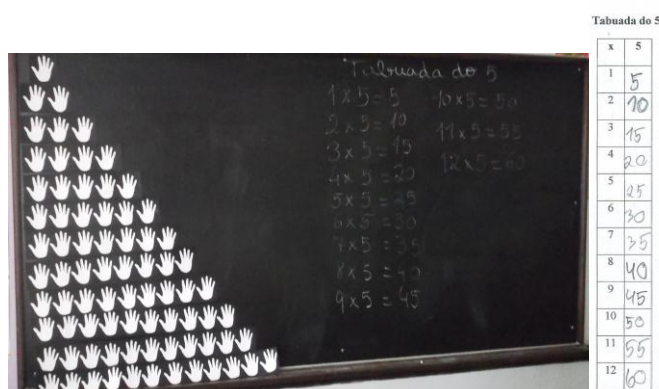 Tabuada do 5
1 x 5 = 5
2 x 5 = 10
3 x 5 = 15
4 x 5 = 20
5 x 5 = 25
6 x 5 = 30
7 x 5 = 35
8 x 5 = 40
9 x 5 = 45
10 x 5 = 50
11 x 5 = 55
12 x 5 = 60
Tabuada do 5
x 5
1 5
2 10
3 15
4 20
5 25
6 30
7 35
8 40
9 45
10 50
11 55
12 60